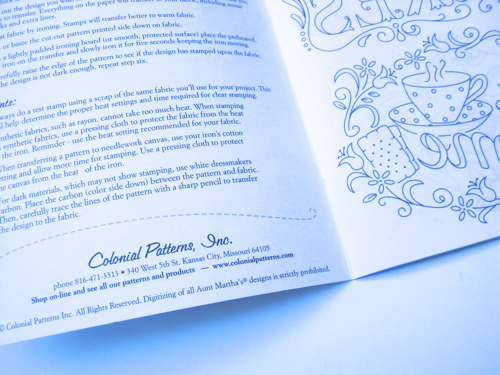 out the design you
to transfer. Everything on the paper will transfer to your fabric, including some
ks and extra lines.
at fabric by ironing. Stamps will transfer better to warm fabric.
or baste the cut out pattern printed side down on fabric.
a lightly padded ironing board (or smooth, protected surface) place the preheated,
iron on the transfer and slowly iron it for five seconds-keeping the iron moving.
refully raise the edge of the pattern to see if the design has stamped upon the fabric.
he design is not dark enough, repeat step six.
nts:
ways do a test stamp using a scrap of the same fabric you'll use for your project. This
ll help determine the proper heat settings and time required for clear stamping.
nthetic fabrics, such as rayon, cannot take too much heat. When stamping
synthetic fabric, use a pressing cloth to protect the fabric from the heat
the iron. Reminder - use the heat setting recommended for your fabric.
When transferring a pattern to needlework canvas, use your iron's cotton
etting and allow more time for stamping. Use a pressing cloth to protect
he canvas from the heat of the iron.
For dark materials, which may not show stamping, use white dressmakers
carbon. Place the carbon (color side down) between the pattern and fabric.
Then, carefully trace the lines of the pattern with a sharp pencil to transfer
the design to the fabric.
Colonial Patterns, Inc.
phone 816-471-3313 • 340 West 5th St. Kansas City, Missouri 64105
Shop on-line and see all our patterns and products — www.colonialpatterns.com
© Colonial Patterns Inc. All Rights Reserved. Digitizing of all Aunt Martha's® designs is strictly prohibited.